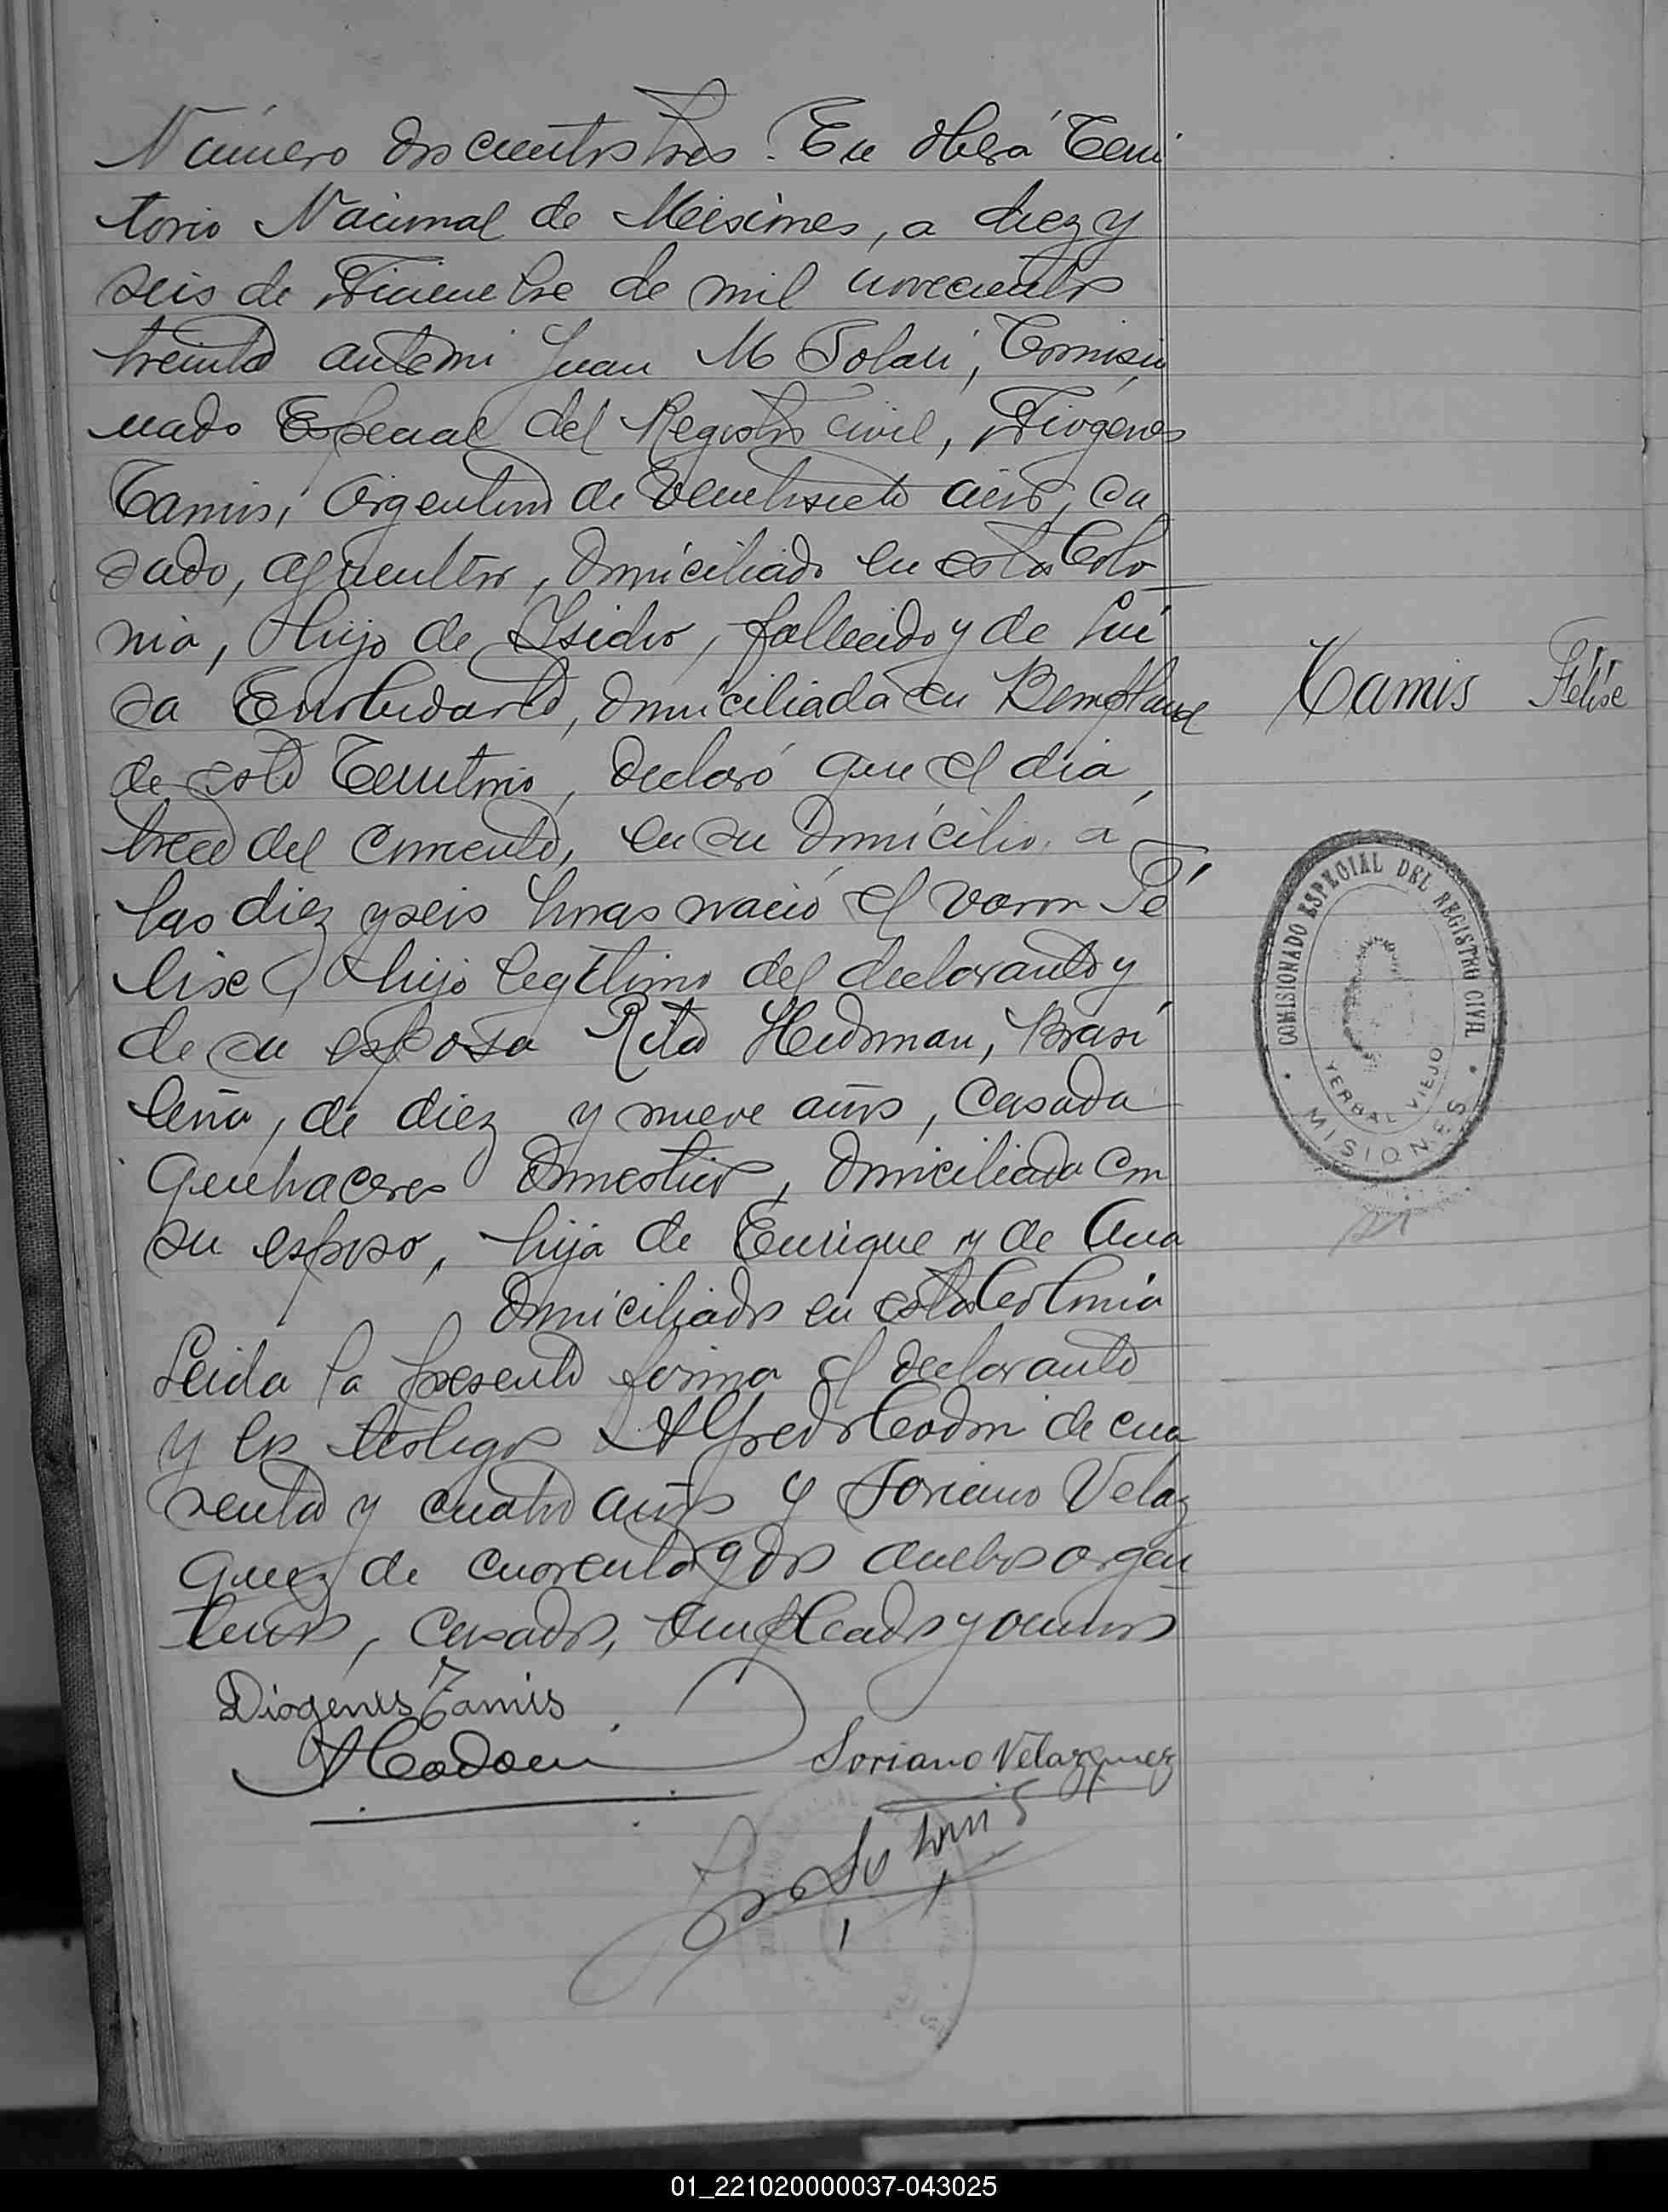 Número doscientos tres. En Oberá Terri
torio Nacional de Misiones, a diez y
seis de Diciembre de mil novecientos
treinta ante mi Juan M Solari, Comisio
nado Especial del Registro Civil, Diógenes
Tamis, argentino de veintisiete años, ca
sado, agricultor, domiciliado en esta Colo
nia, hijo de Isidro, fallecido y de Lui
sa domiciliada en Bompland
de este Territorio, declaró que el dia
trece del corriente, en su domicilio a
las diez y seis horas nació el varon Fé
lise, hijo legitimo del declarante y
de su esposa Rita Heidman, Brasi
leña, de diez y nueve años, casada
quehaceres domesticos, domiciliada con
su esposo, hija de Enrique y de Ana
domiciliados en esta Colonia
Leida la presente firma el declarante
y los testigos Alfredo Codon de cua
renta y cuatro años y Soriano Velaz
quez de cuarenta y dos ambos argen
tinos, casados, empleados y
Tamis Félise
COMISIONADO ESPECIAL DEL REGISTRO CIVIL
YERBAL VIEJO
MISIONES
Diogenes Tamis
ACodon
Soriano Velazquez
01_221020000037-043025